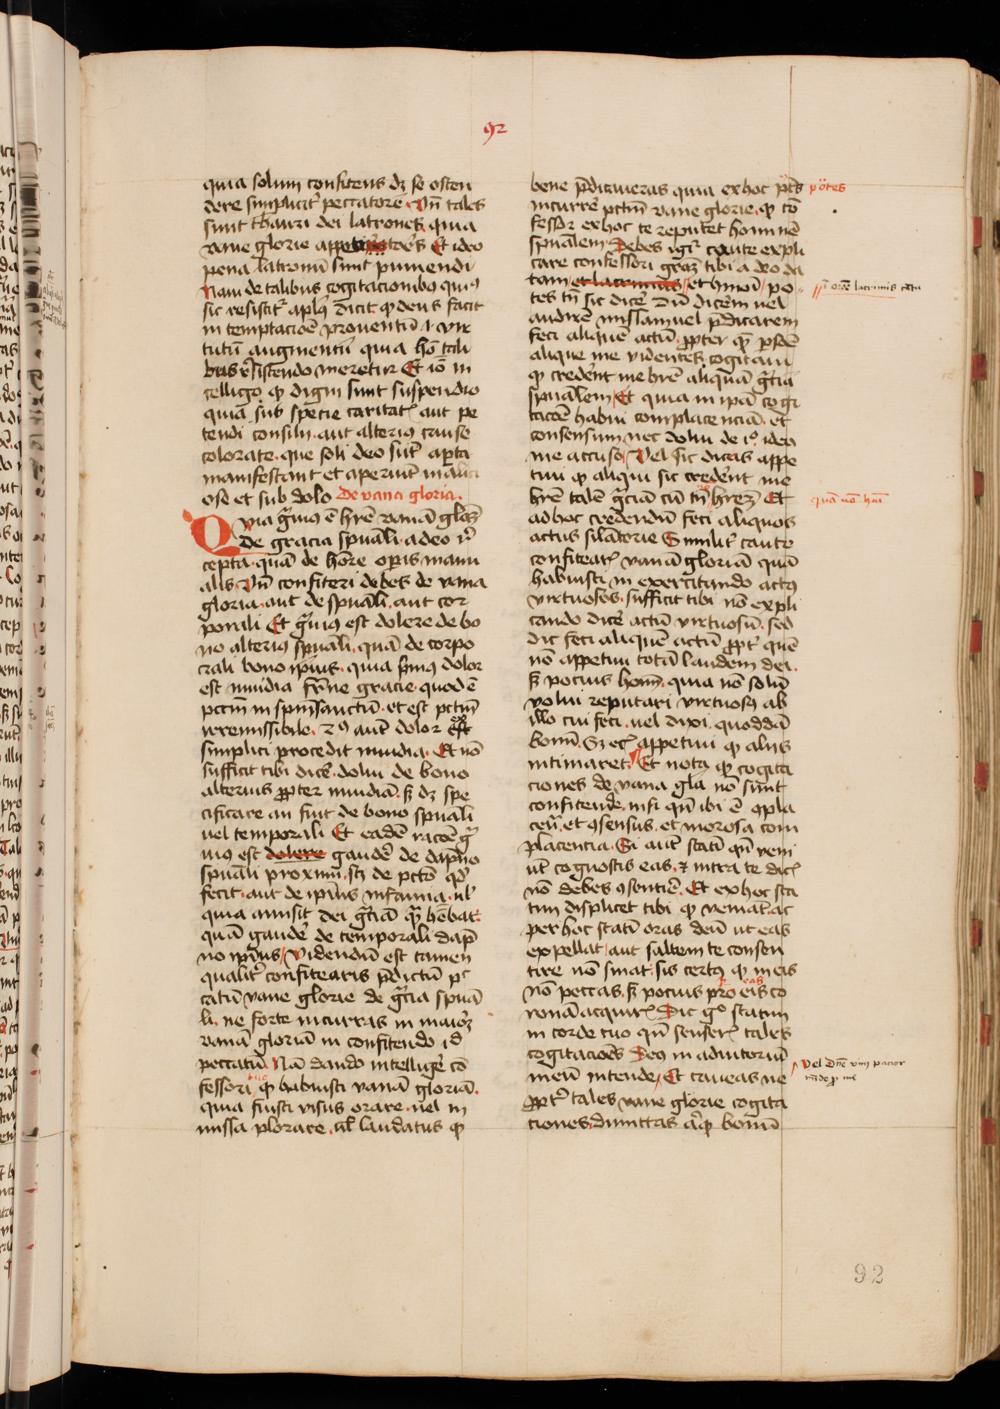 92
quia solum confitens dz se osten
dere simplicit᷑ peccatorē Vn̄ tales
sunt thauri dei latrones quia
vane glorie appetitores Et ideo
pena latronū sunt puniendi
Nam de talibus cogitacionibus quib9
sic resistit᷑ apl9 dicit ꝙ deus facit
in temptacōe ꝓventū i vir
tutū augmentū quia hō tali
bus r̄sistendo meretur Et iō in
telligo ꝙ digni sunt suspendio
quia sub specie caritat᷑ aut pe
tendi consilij aut alteri9 cause
colorate que soli deo sūt apta
manifestant et aperiunt malici
ose et sub dolo De vana gloria
Quia g̃ui9 ē hr̄e vanā glōz
De gracia spūali a deo re
cepta quā de hōre oꝑis manu
alis Vn̄ confiteri debes de vana
gloria aut de spūali aut cor
porali Et g̃ui9 est dolere de bo
no alteri9 spūali quā de corpo
rali bono ip̄ius quia p̄mus dolor
est invidia fr̄ne gracie quod ē
pctm̄ in spm̄sanctū et est pctm̄
irremissibile 2us aut dolor ex
simplici procedit invidia Et nō
sufficit tibi dicē dolui de bono
alterius ꝓpter invidiā s̄ dz spe
cificare an fuit de bono spūali
vel temporali Et eadē racōe g̃
ui9 est dolere gaudē de dāpno
spūali proximi scꝫ de pctō qd̄
fecit aut de ip̄ius infamia vl̓
quia amisit dei gr̄iā quā hēbat
quā gaudē de temporali dāp
no ip̄ius Videndū est tamen
qualit᷑ confitearis p̄dictū pec
catū vane glorie de gr̄ia spūa
li ne forte incurras in maiorē
vanā gloriā in confitendo id
peccatū Nā dando intelligē cō
fessori ꝙ habuisti vanā gloriā
quia fuisti visus orare vel in
missa plorare vl̓ laudatus ꝙ
bene p̄dicaveras quia ex hoc
potes
incurrē pctm̄ vane glorie ꝙ cō
fessor ex hoc te reputet hominē
spūalem Debes igr̄ caute expli
care confessori grāz tibi a deo da
tam et lacrimas et hmōi po
tes tn̄ sic dicē dū dicēm vel
audirē missam vel p̄dicarem
feci aliquē actū ꝓpter quē
aliqui me videntes cogitarūt
ꝙ credent me hr̄e aliquā gr̄iā
spūalem Et quia in ip̄a cogi
tacōe habui complacenciā et
consensum nec dolui de ideo
me accuso Vel sic dicas appe
tivi ꝙ aliqui sic credent me
hr̄e talē gr̄iā cū tn̄ hrez Et
quā nō hui
ad hoc credendū feci aliquos
actus silatorie Similit᷑ caute
confitear᷑ vanā gloriā quā
habuisti in exercitando actus
virtuosos sufficit tibi nō expli
cando dicē actū virtuosū sed
dic feci aliquē actū ꝓpt᷑ quē
nō appetivi totā laudem dei
s̄ pocius hom̄ quia nō solū
volui reputari virtuosus ab
illo cui feci vel dixi quoddā
bonū Sz ec᷑ appetivi ꝙ aliis
intimaret Et nota ꝙ cogita
ciones de vana glā nō sunt
confitende nisi qn̄ ibi ē ꝯpla
cen̄ et ꝯsensus et morosa com
placencia Si aut statī qn̄ veni
ūt cognoscis eas et intra te dic᷑
nō debes ꝯsentire Et ex hoc sta
tim displicet tibi ꝙ veniāt ac
per hoc statī oras deū ut eas
expellat aut saltem te consen
tire nō sinat sis certus ꝙ in eis
nō peccas s̄ pocius pro eis co
ronā acquir᷑ Dic g° statim
in corde tuo qn̄ senser᷑ tales
cogitacōes Deus in adiutoriū
meū intende Et caveas ne
vel Dn̄e vim pacior
rn̄de ꝓ me
ꝓpt᷑ tales vane glorie cogita
ciones dimittas bonū
92